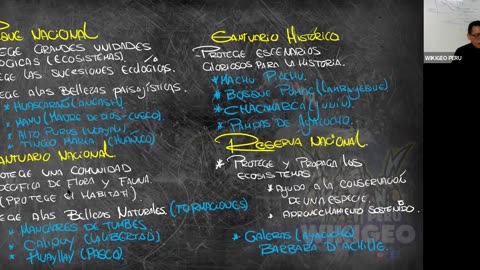 QUE NACIONAL
EGE GRANDES UNIDADES
LÓGICAS (ECOSISTEMAS)
EGE LAS SUCESIONES ECOLÓGICAS.
EGE A LAS BELLEZAS PAISAJÍSTICAS.
* HUASCARÁN (ANCASH)
* MANU (MADRE DE DIOS-CUSCO)
* ALTO PURUS (UCAYALI)
* TINGO MARÍA (HUÁNUCO)
NTUARIO NACIONAL
OTEGE UNA COMUNIDAD
PECÍFICA DE FLORA Y FAUNA.
(PROTEGE EL HABITAT)
EGE A LAS BELLEZAS NATURALES. (FORMACIONES)
* MANGLARES DE TUMBES
* CALIPUY (LA LIBERTAD)
* HUAYLLAY (PASCO)
SANTUARIO HISTÓRICO
PROTEGE ESCENARIOS
GLORIOSOS PARA LA HISTORIA.
* MACHU PICCHU
* BOSQUE POMAC (LAMBAYEQUE)
* CHACAMARCA (JUNÍN)
* PAMPAS DE AYACUCHO
RESERVA NACIONAL
* PROTEGE Y PROPAGA LOS
ECOSISTEMAS
* AYUDA A LA CONSERVACIÓN
DE UNA ESPECIE.
* APROVECHAMIENTO SOSTENIDO.
* GALERAS (AYACUCHO)
BARBARA D'ACHILLE
WIKIGEO
WIKIGEO PERU